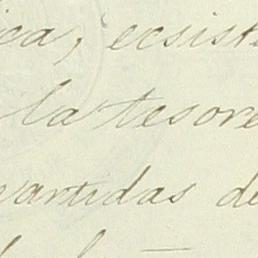 ica, ecsiste
la tesore
partidas de